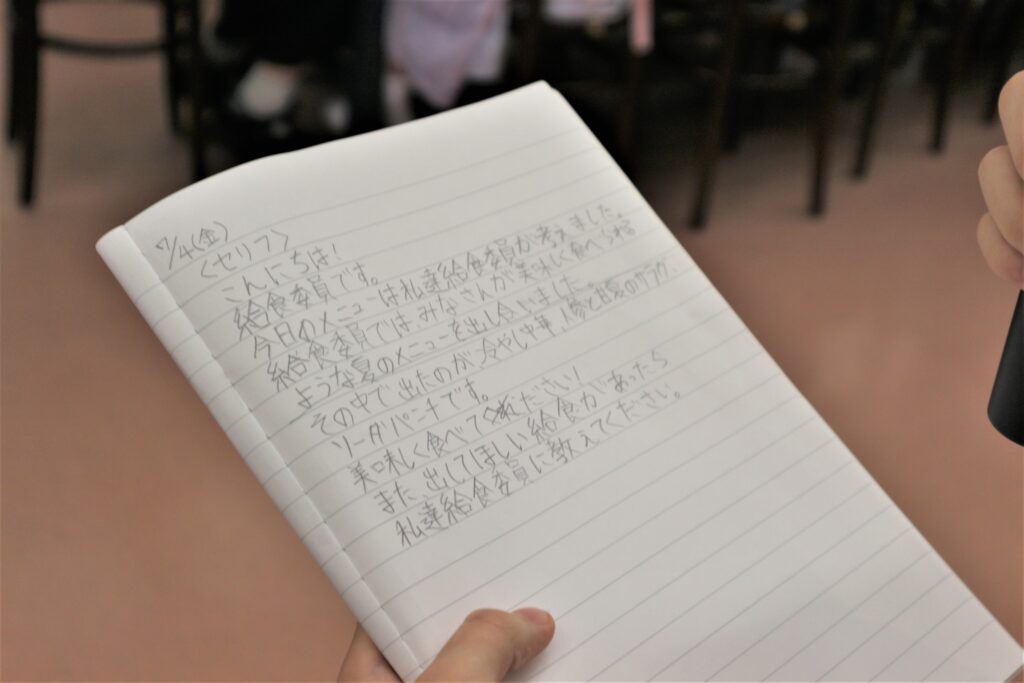 7/4(金)
〈セリフ〉
こんにちは!
給食委員です。
今日のメニューは私達給食委員が考えました。
給食委員では、みなさんが美味しく食べられる
ような夏のメニューを出し合いました。
その中で出たのが、冷やし中華、豚と白菜のサラダ、
ソーダパンチです。
美味しく食べてくれださい!
また、出してほしい給食があったら
私達給食委員に教えてください。